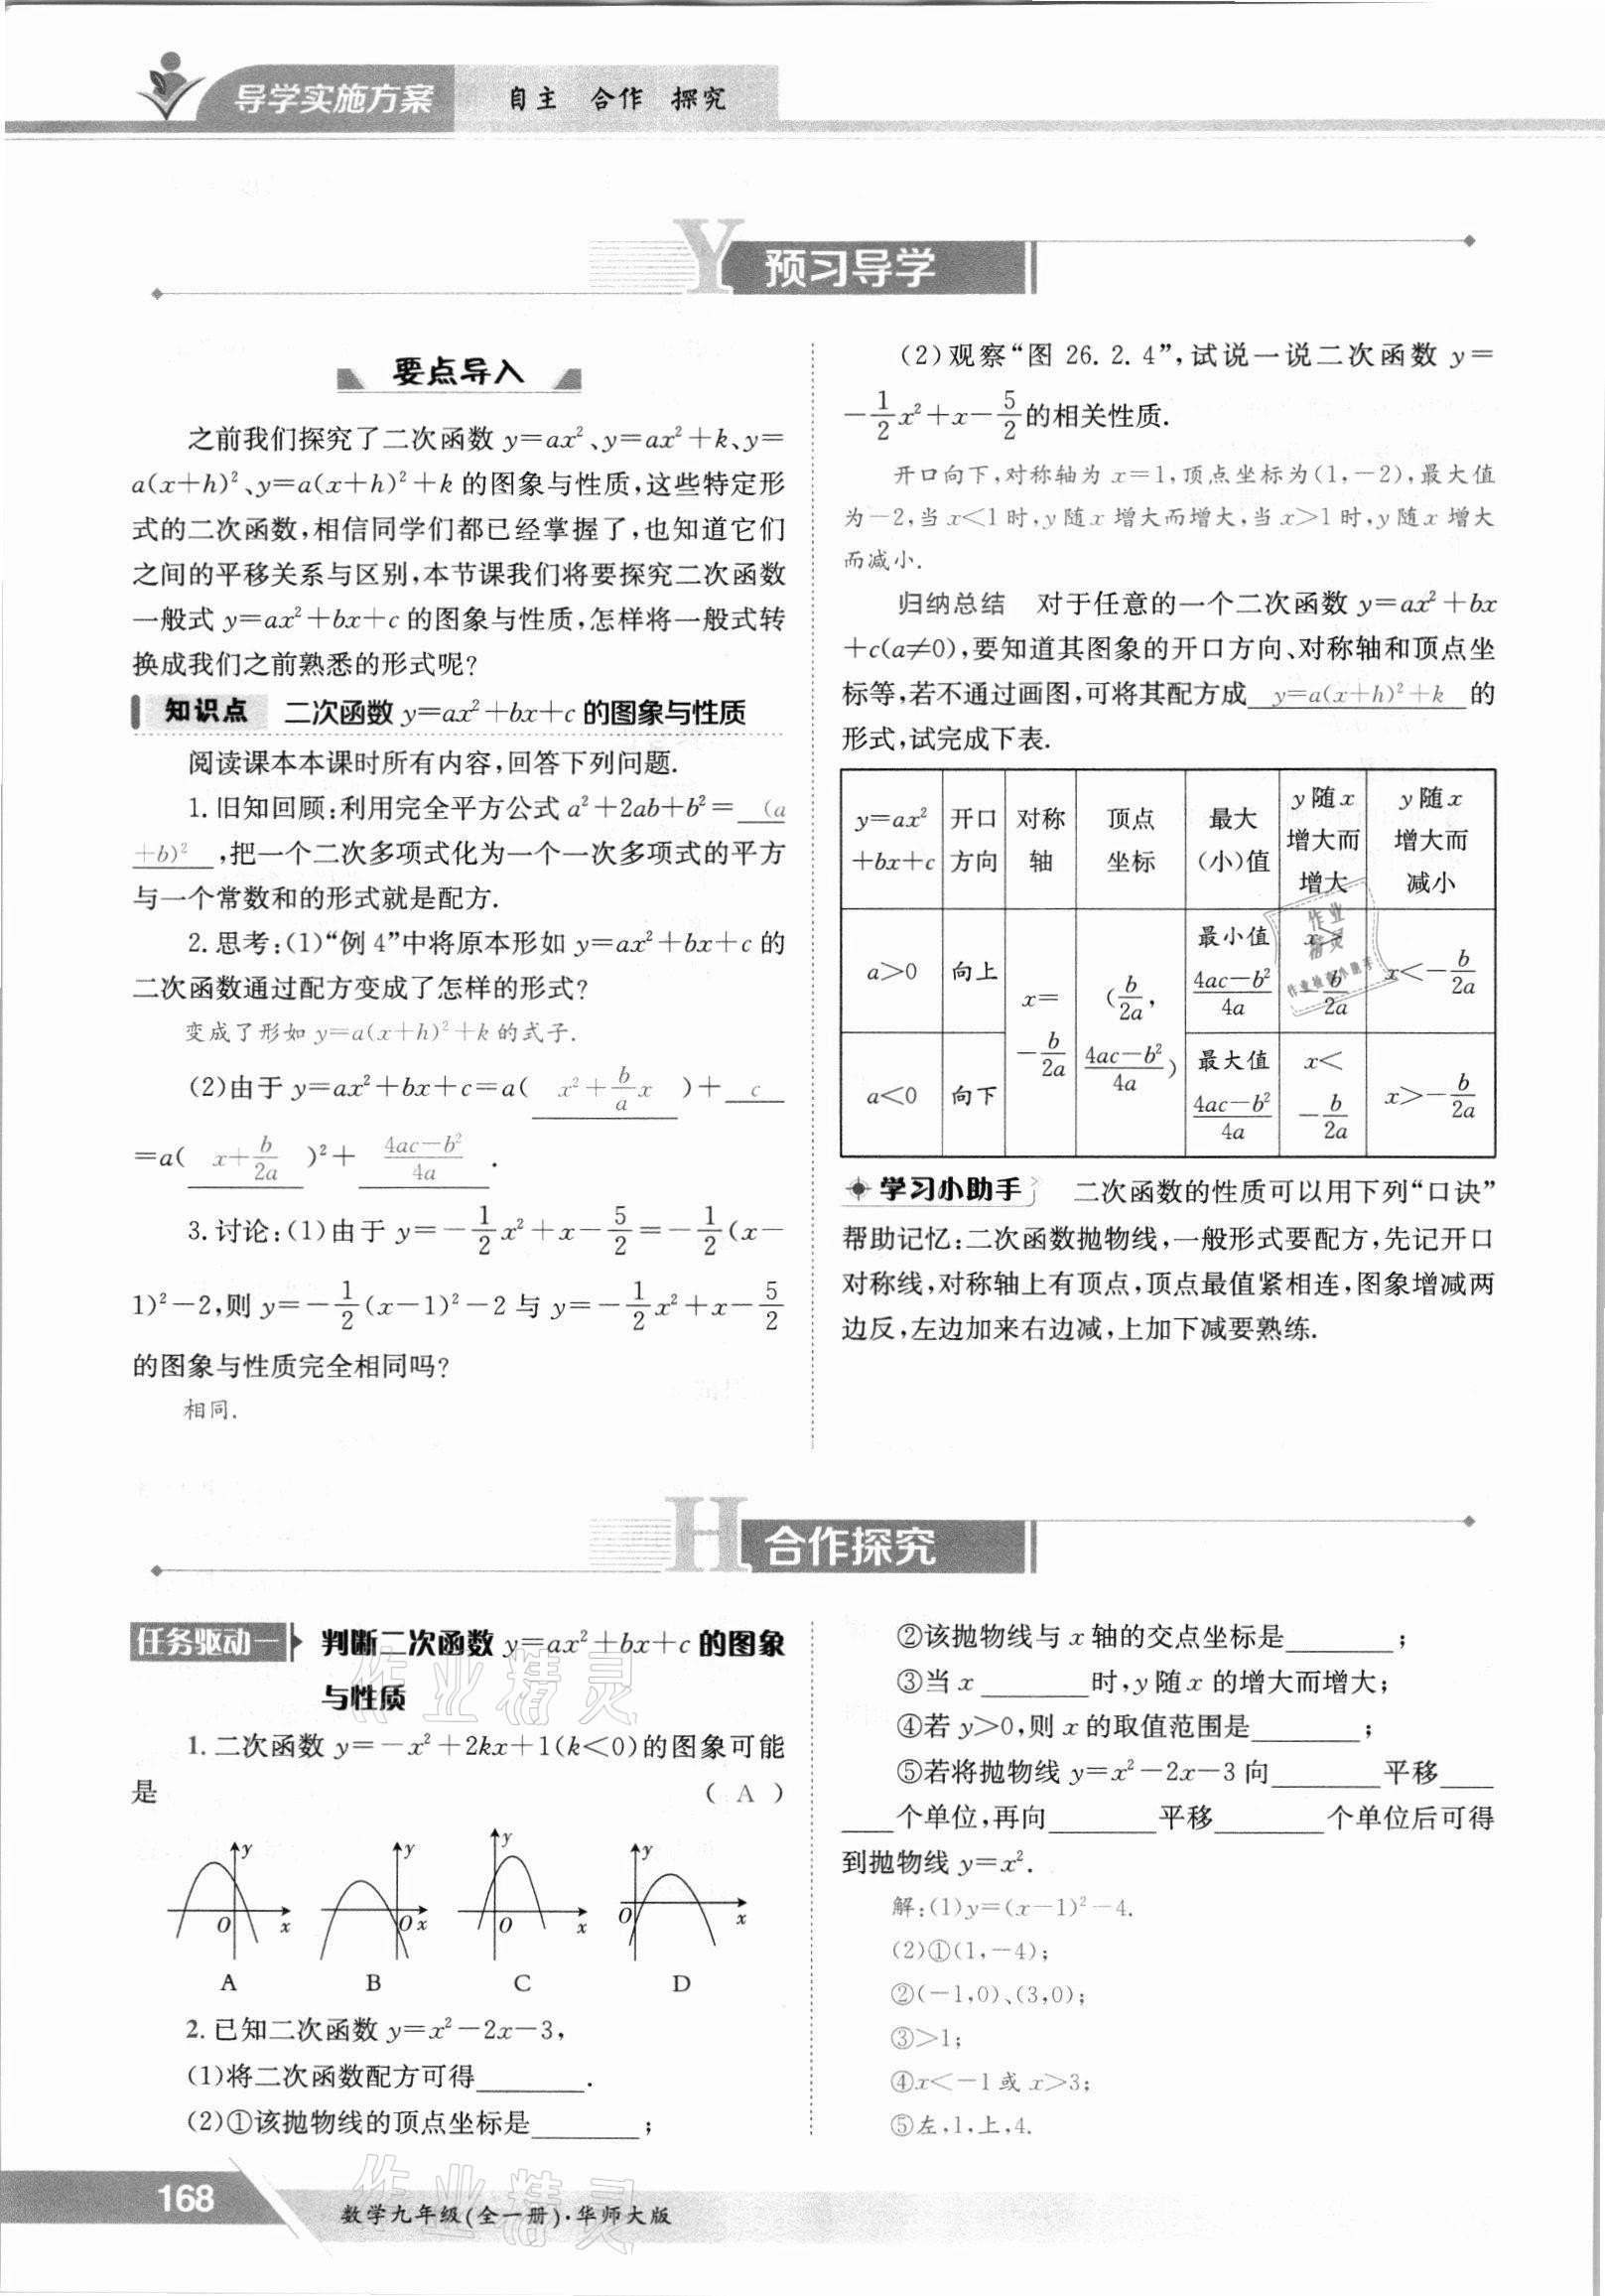 导学实施方案 自主 合作 探究
Y 预习导学
要点导入
之前我们探究了二次函数 y=ax²、y=ax²+k、y=
a(x+h)²、y=a(x+h)²+k 的图象与性质,这些特定形
式的二次函数,相信同学们都已经掌握了,也知道它们
之间的平移关系与区别,本节课我们将要探究二次函数
一般式 y=ax²+bx+c 的图象与性质,怎样将一般式转
换成我们之前熟悉的形式呢?
知识点 二次函数 y=ax²+bx+c 的图象与性质
阅读课本本课时所有内容,回答下列问题.
1.旧知回顾:利用完全平方公式 a²+2ab+b²= (a
+b)² ,把一个二次多项式化为一个一次多项式的平方
与一个常数和的形式就是配方.
2.思考:(1)“例 4”中将原本形如 y=ax²+bx+c 的
二次函数通过配方变成了怎样的形式?
变成了形如 y=a(x+h)²+k 的式子.
(2)由于 y=ax²+bx+c=a( x²+b/a x )+ c
=a( x+b/2a )²+ (4ac-b²)/4a .
3.讨论:(1)由于 y=-1/2x²+x-5/2=-1/2(x-
1)²-2,则 y=-1/2(x-1)²-2 与 y=-1/2x²+x-5/2
的图象与性质完全相同吗?
相同.
(2)观察“图 26.2.4”,试说一说二次函数 y=
-1/2x²+x-5/2的相关性质.
开口向下,对称轴为 x=1,顶点坐标为(1,-2),最大值
为-2,当 x<1 时,y 随 x 增大而增大,当 x>1 时,y 随 x 增大
而减小.
归纳总结 对于任意的一个二次函数 y=ax²+bx
+c(a≠0),要知道其图象的开口方向、对称轴和顶点坐
标等,若不通过画图,可将其配方成 y=a(x+h)²+k 的
形式,试完成下表.
y=ax²+bx+c 开口方向 对称轴 顶点坐标 最大(小)值 y 随 x 增大而增大 y 随 x 增大而减小
a>0 向上 x=-b/2a (b/2a, (4ac-b²)/4a) 最小值 (4ac-b²)/4a x>-b/2a x<-b/2a
a<0 向下 最大值 (4ac-b²)/4a x<-b/2a x>-b/2a
作业精灵
作业检查小助手
学习小助手 二次函数的性质可以用下列“口诀”
帮助记忆:二次函数抛物线,一般形式要配方,先记开口
对称线,对称轴上有顶点,顶点最值紧相连,图象增减两
边反,左边加来右边减,上加下减要熟练.
H 合作探究
任务驱动一 判断二次函数 y=ax²+bx+c 的图象
与性质
作业精灵
1.二次函数 y=-x²+2kx+1(k<0)的图象可能
是 ( A )
y O x y O x y O x y O x
A B C D
2.已知二次函数 y=x²-2x-3,
(1)将二次函数配方可得________.
(2)①该抛物线的顶点坐标是________;
②该抛物线与 x 轴的交点坐标是________;
③当 x ________时,y 随 x 的增大而增大;
④若 y>0,则 x 的取值范围是________;
⑤若将抛物线 y=x²-2x-3 向________平移____
____个单位,再向________平移________个单位后可得
到抛物线 y=x².
解:(1)y=(x-1)²-4.
(2)①(1,-4);
②(-1,0)、(3,0);
③>1;
④x<-1 或 x>3;
⑤左,1,上,4.
作业精灵
168 数学九年级(全一册)·华师大版